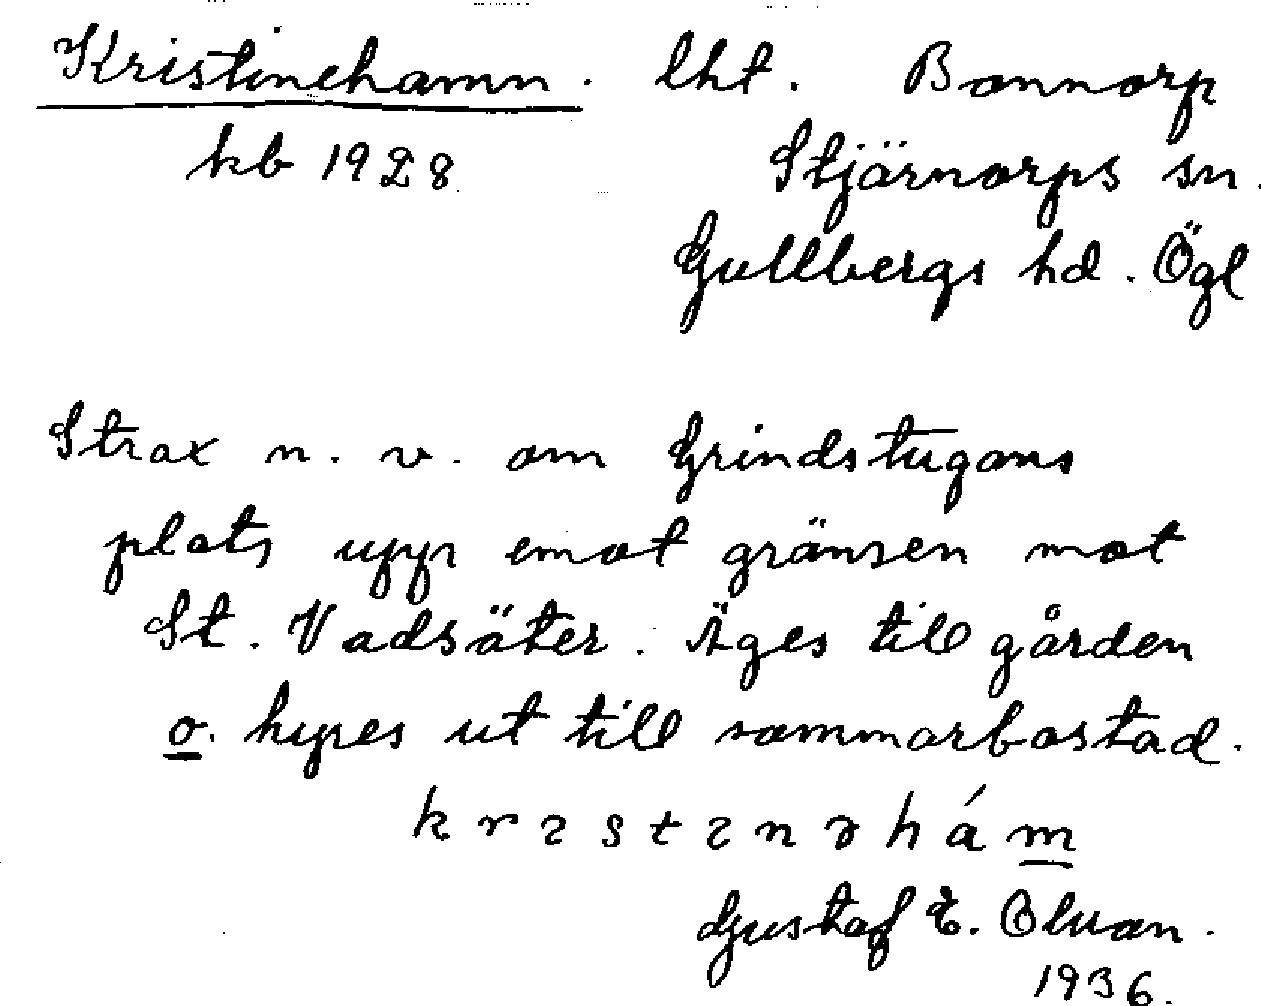 Kristinehamn. lht. Bonnorp
kb 1928 Stjärnorps sn.
Gullbergs hd. Ögl
Strax n. v. om Grindstugans
plats upp emot gränsen mot
St. Vadsäter. Äges till gården
o. hyres ut till sommarbostad.
krɪstɪnəhám
Gustaf E. Olson.
1936.